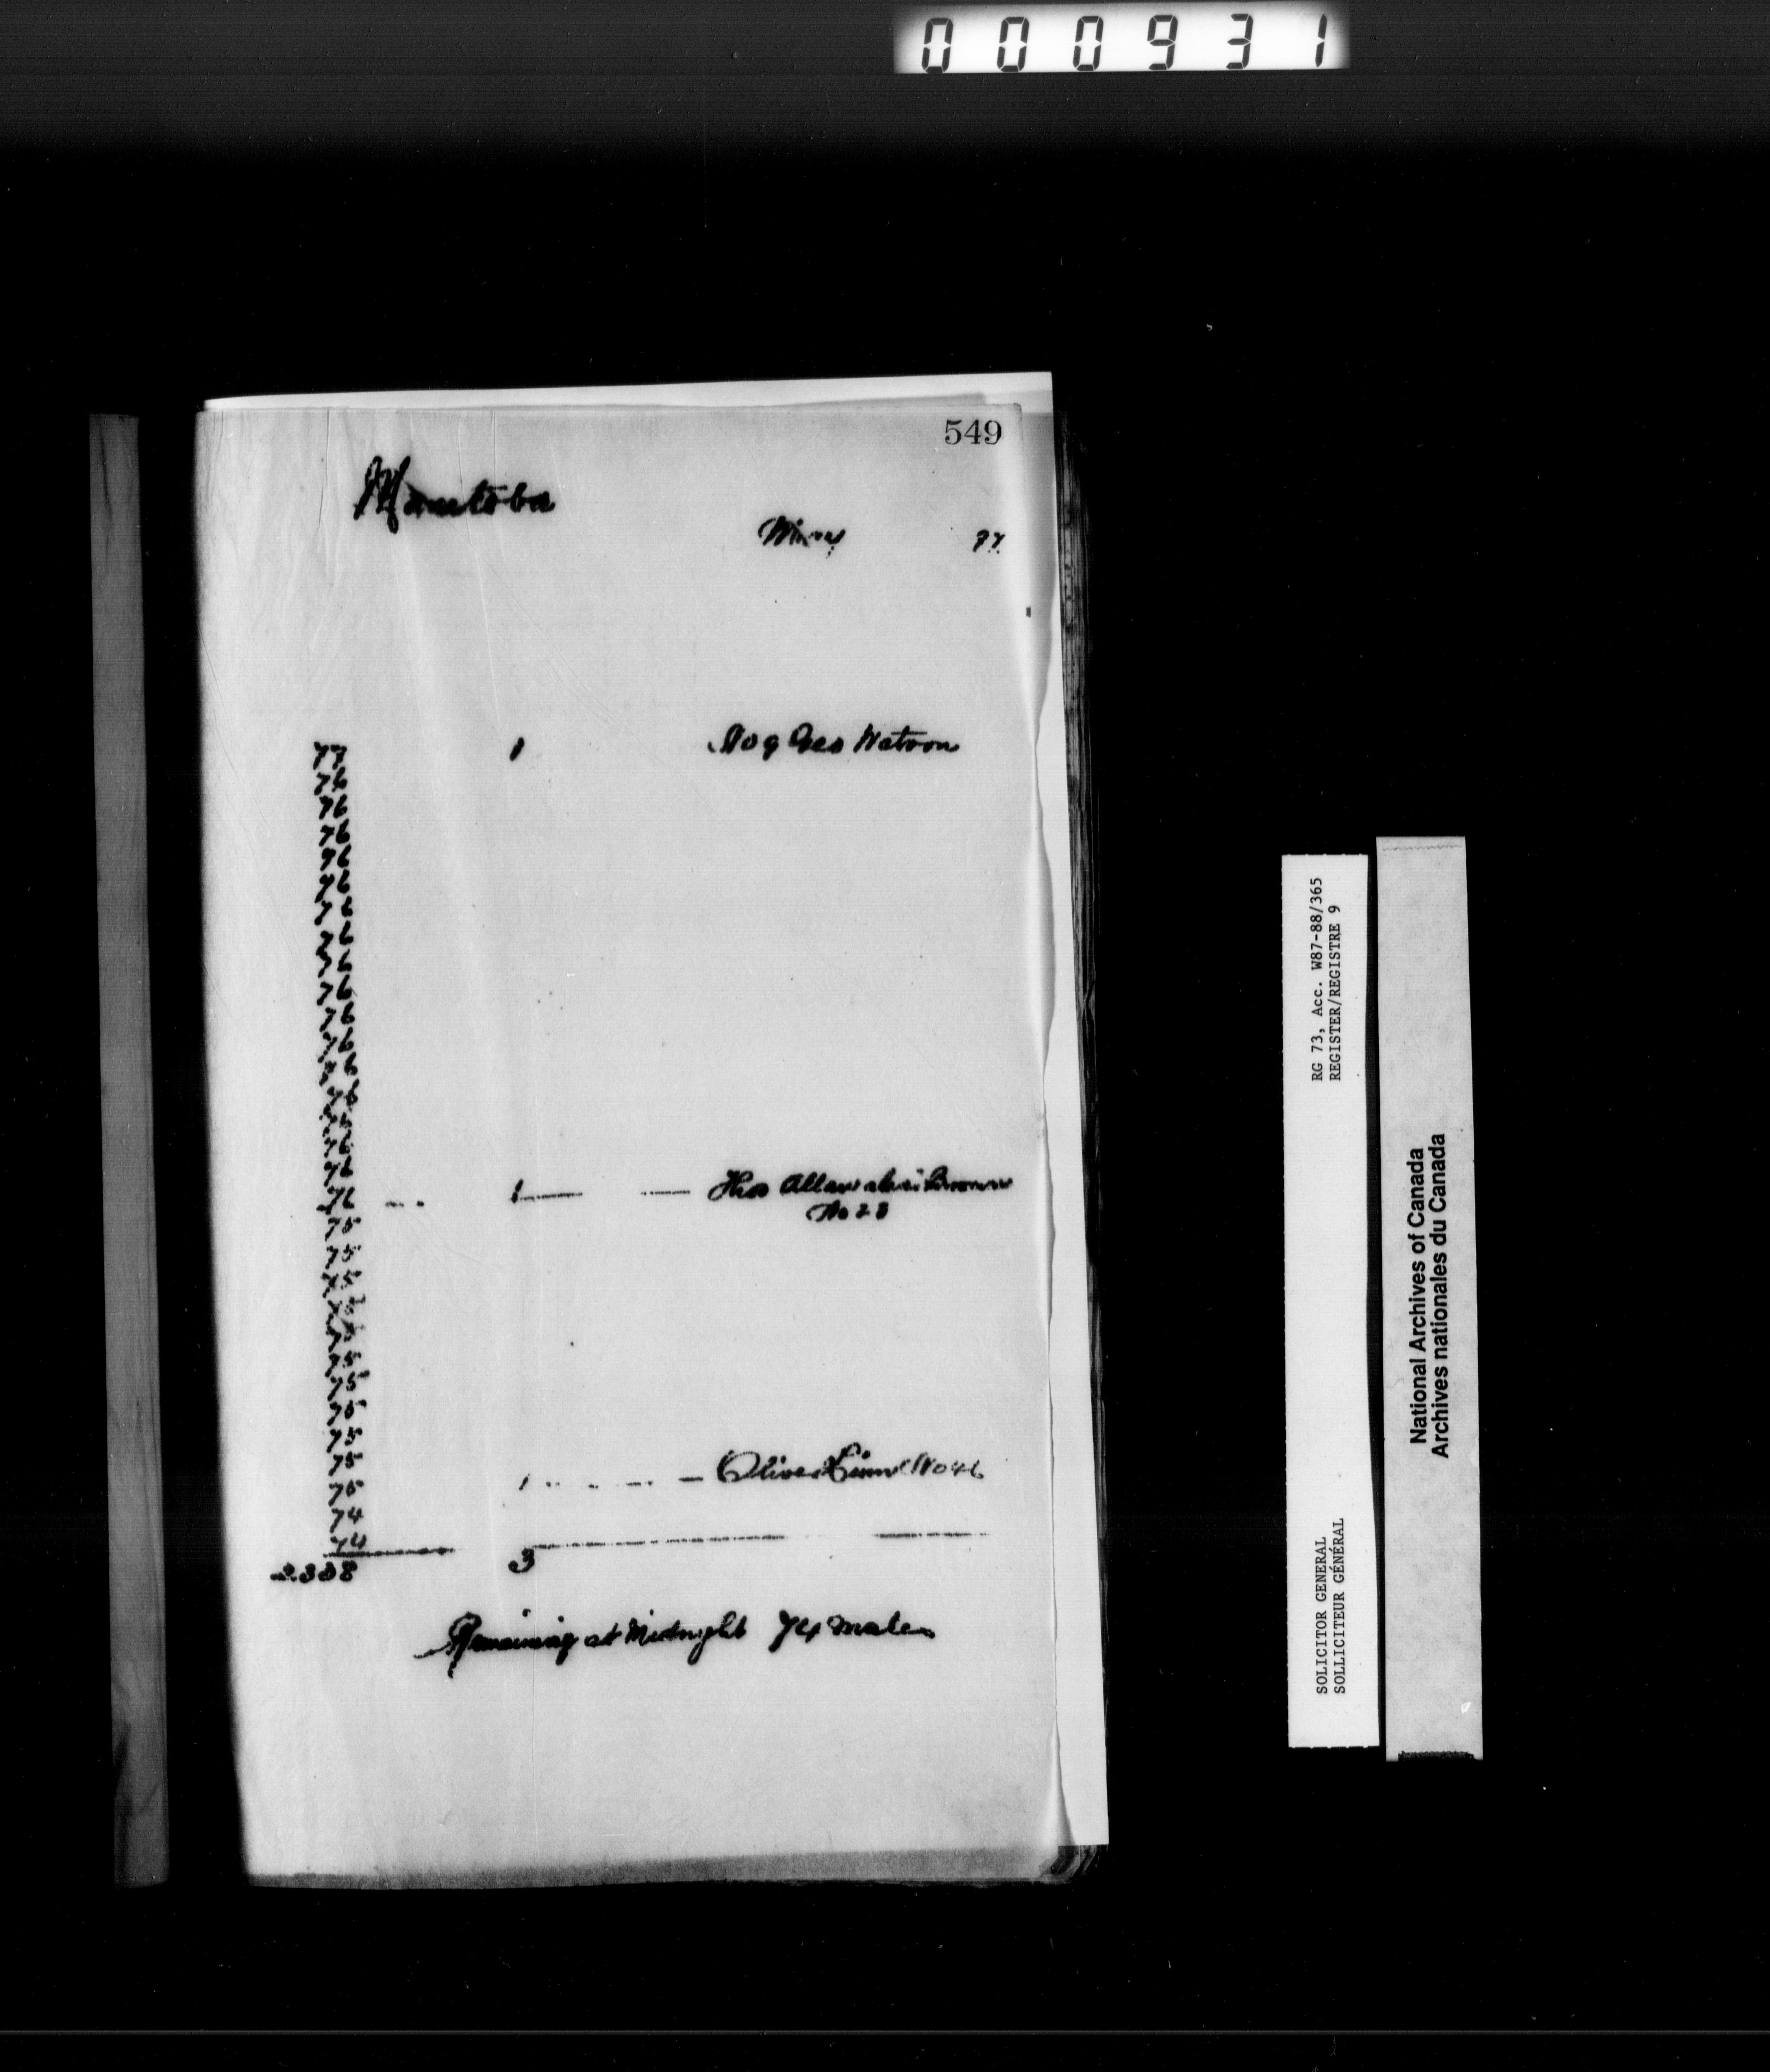 000931
549
Manitoba
77
77
76
76
76
76
76
76
76
76
76
76
76
76
76
76
76
1 No 9 Geo Watson
76 1 Thos Allan alias Brown
No 28
75
75
75
75
75
75
75
75
75
75
75
1 Oliver No 46
74
74
2338 3
Remaining at Midnight 74 Males
RG 73, Acc. W87-88/365
REGISTER/REGISTRE 9
SOLICITOR GENERAL
SOLLICITEUR GÉNÉRAL
National Archives of Canada
Archives nationales du Canada